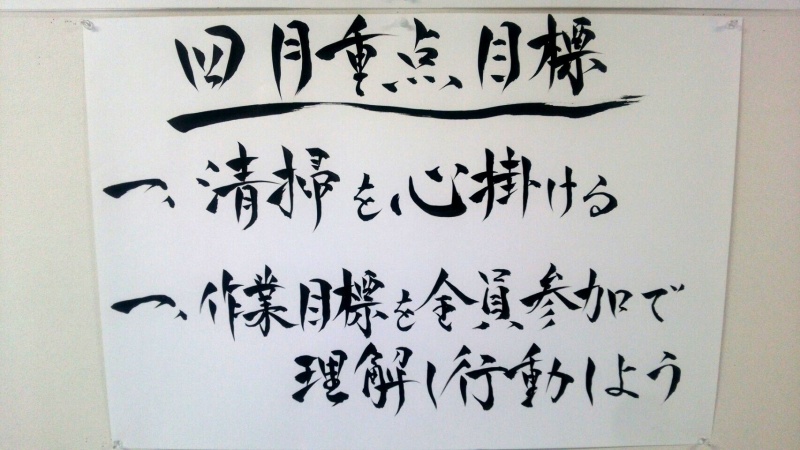 四月重点目標
一、清掃を心掛ける
一、作業目標を全員参加で
理解し行動しよう